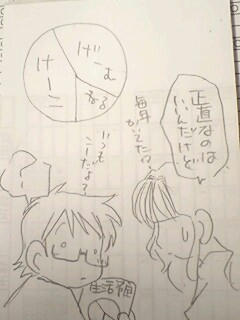 げーむ
けーこ
ねる
正直なのは
いいんだけど
毎年
かいてたの?
いつも
こーだよ?
?
生活予定